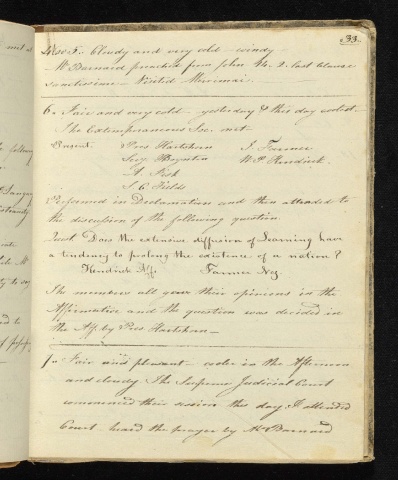 33.
Cloudy and very cold - windy
Mr Barnard preached from John 14. 2. last clause
Visited
6. Fair and very cold - yesterday & this day coldest.
The Extemporaneous Soc. met -
Present. Pres Hartshorn J. Farmer
Secy Boynton W. P. Kendrick
Lt. Fisk
S. C. Fields
Performed in Declamation and then attended to
the discussion of the following question
Quest. Does the extensive diffusion of Learning have
a tendency to prolong the existence of a nation?
Kendrick Aff. Farmer Neg.
The members all gave their opinions in the
Affirmative and the question was decided in
the Aff. by Pres Hartshorn -
7. Fair and pleasant - cooler in the Afternoon
and cloudy. The Supreme Judicial Court
commenced their session this day. I attended
Court - heard the prayer by Mr Barnard